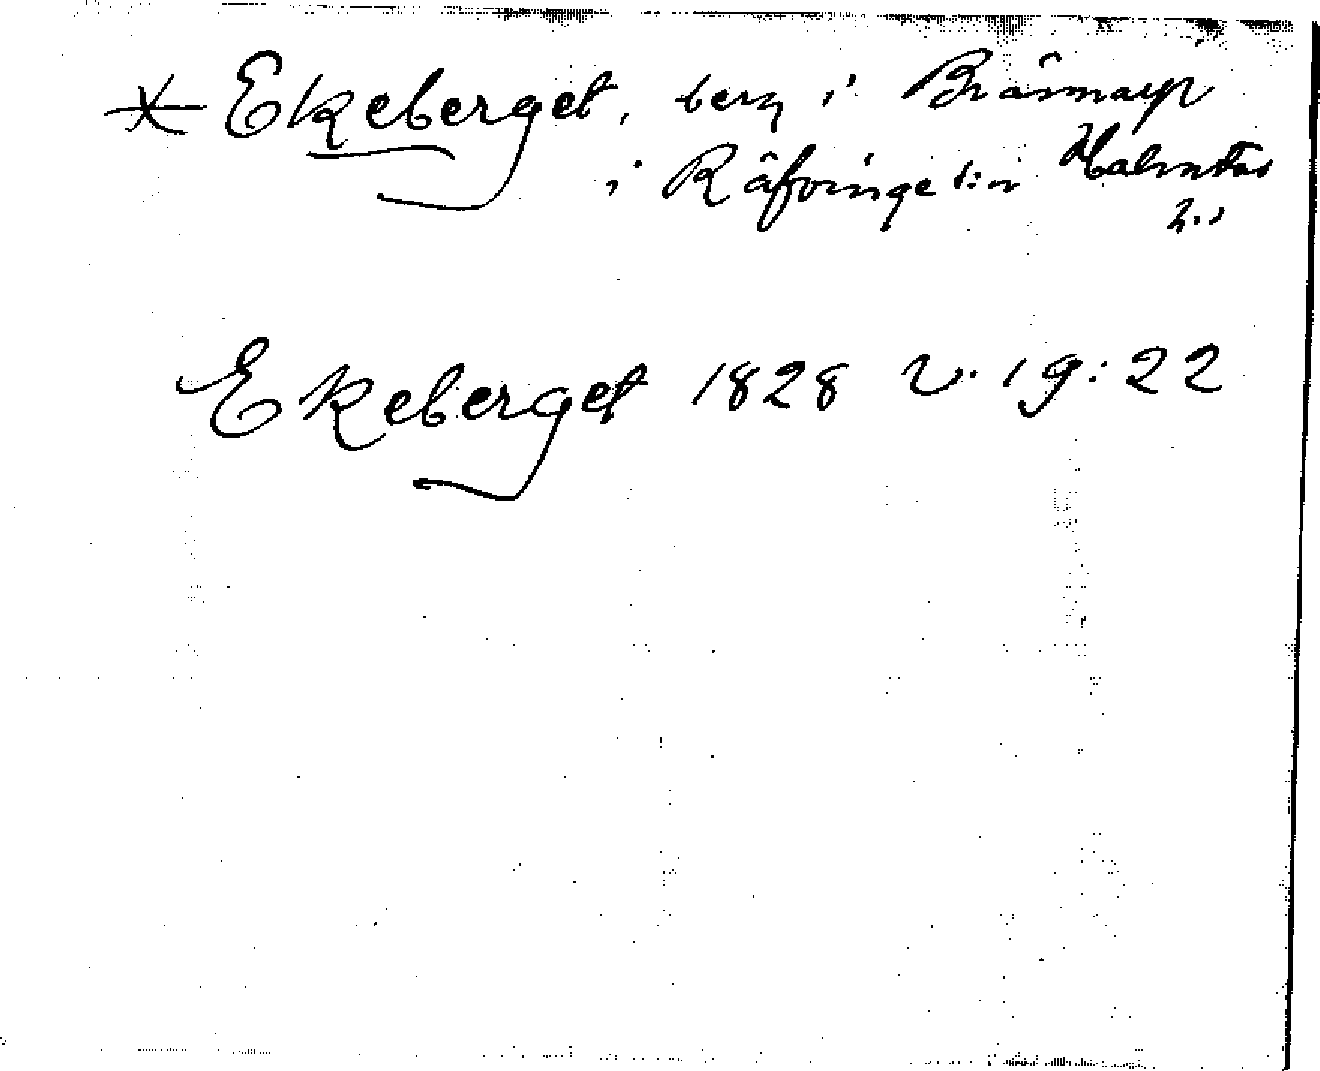 * Ekeberget, berg i Brännarp
i Räfvinge s:n Halmstas
h.d
Ekeberget 1828 v. 19:22